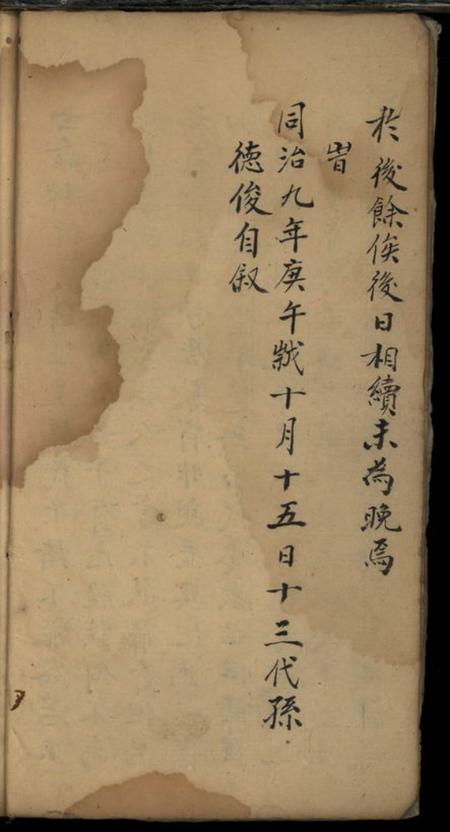 於後餘俟後日相續未為晚焉
旹
同治九年庚午歲十月十五日十三代孫
德俊自叙